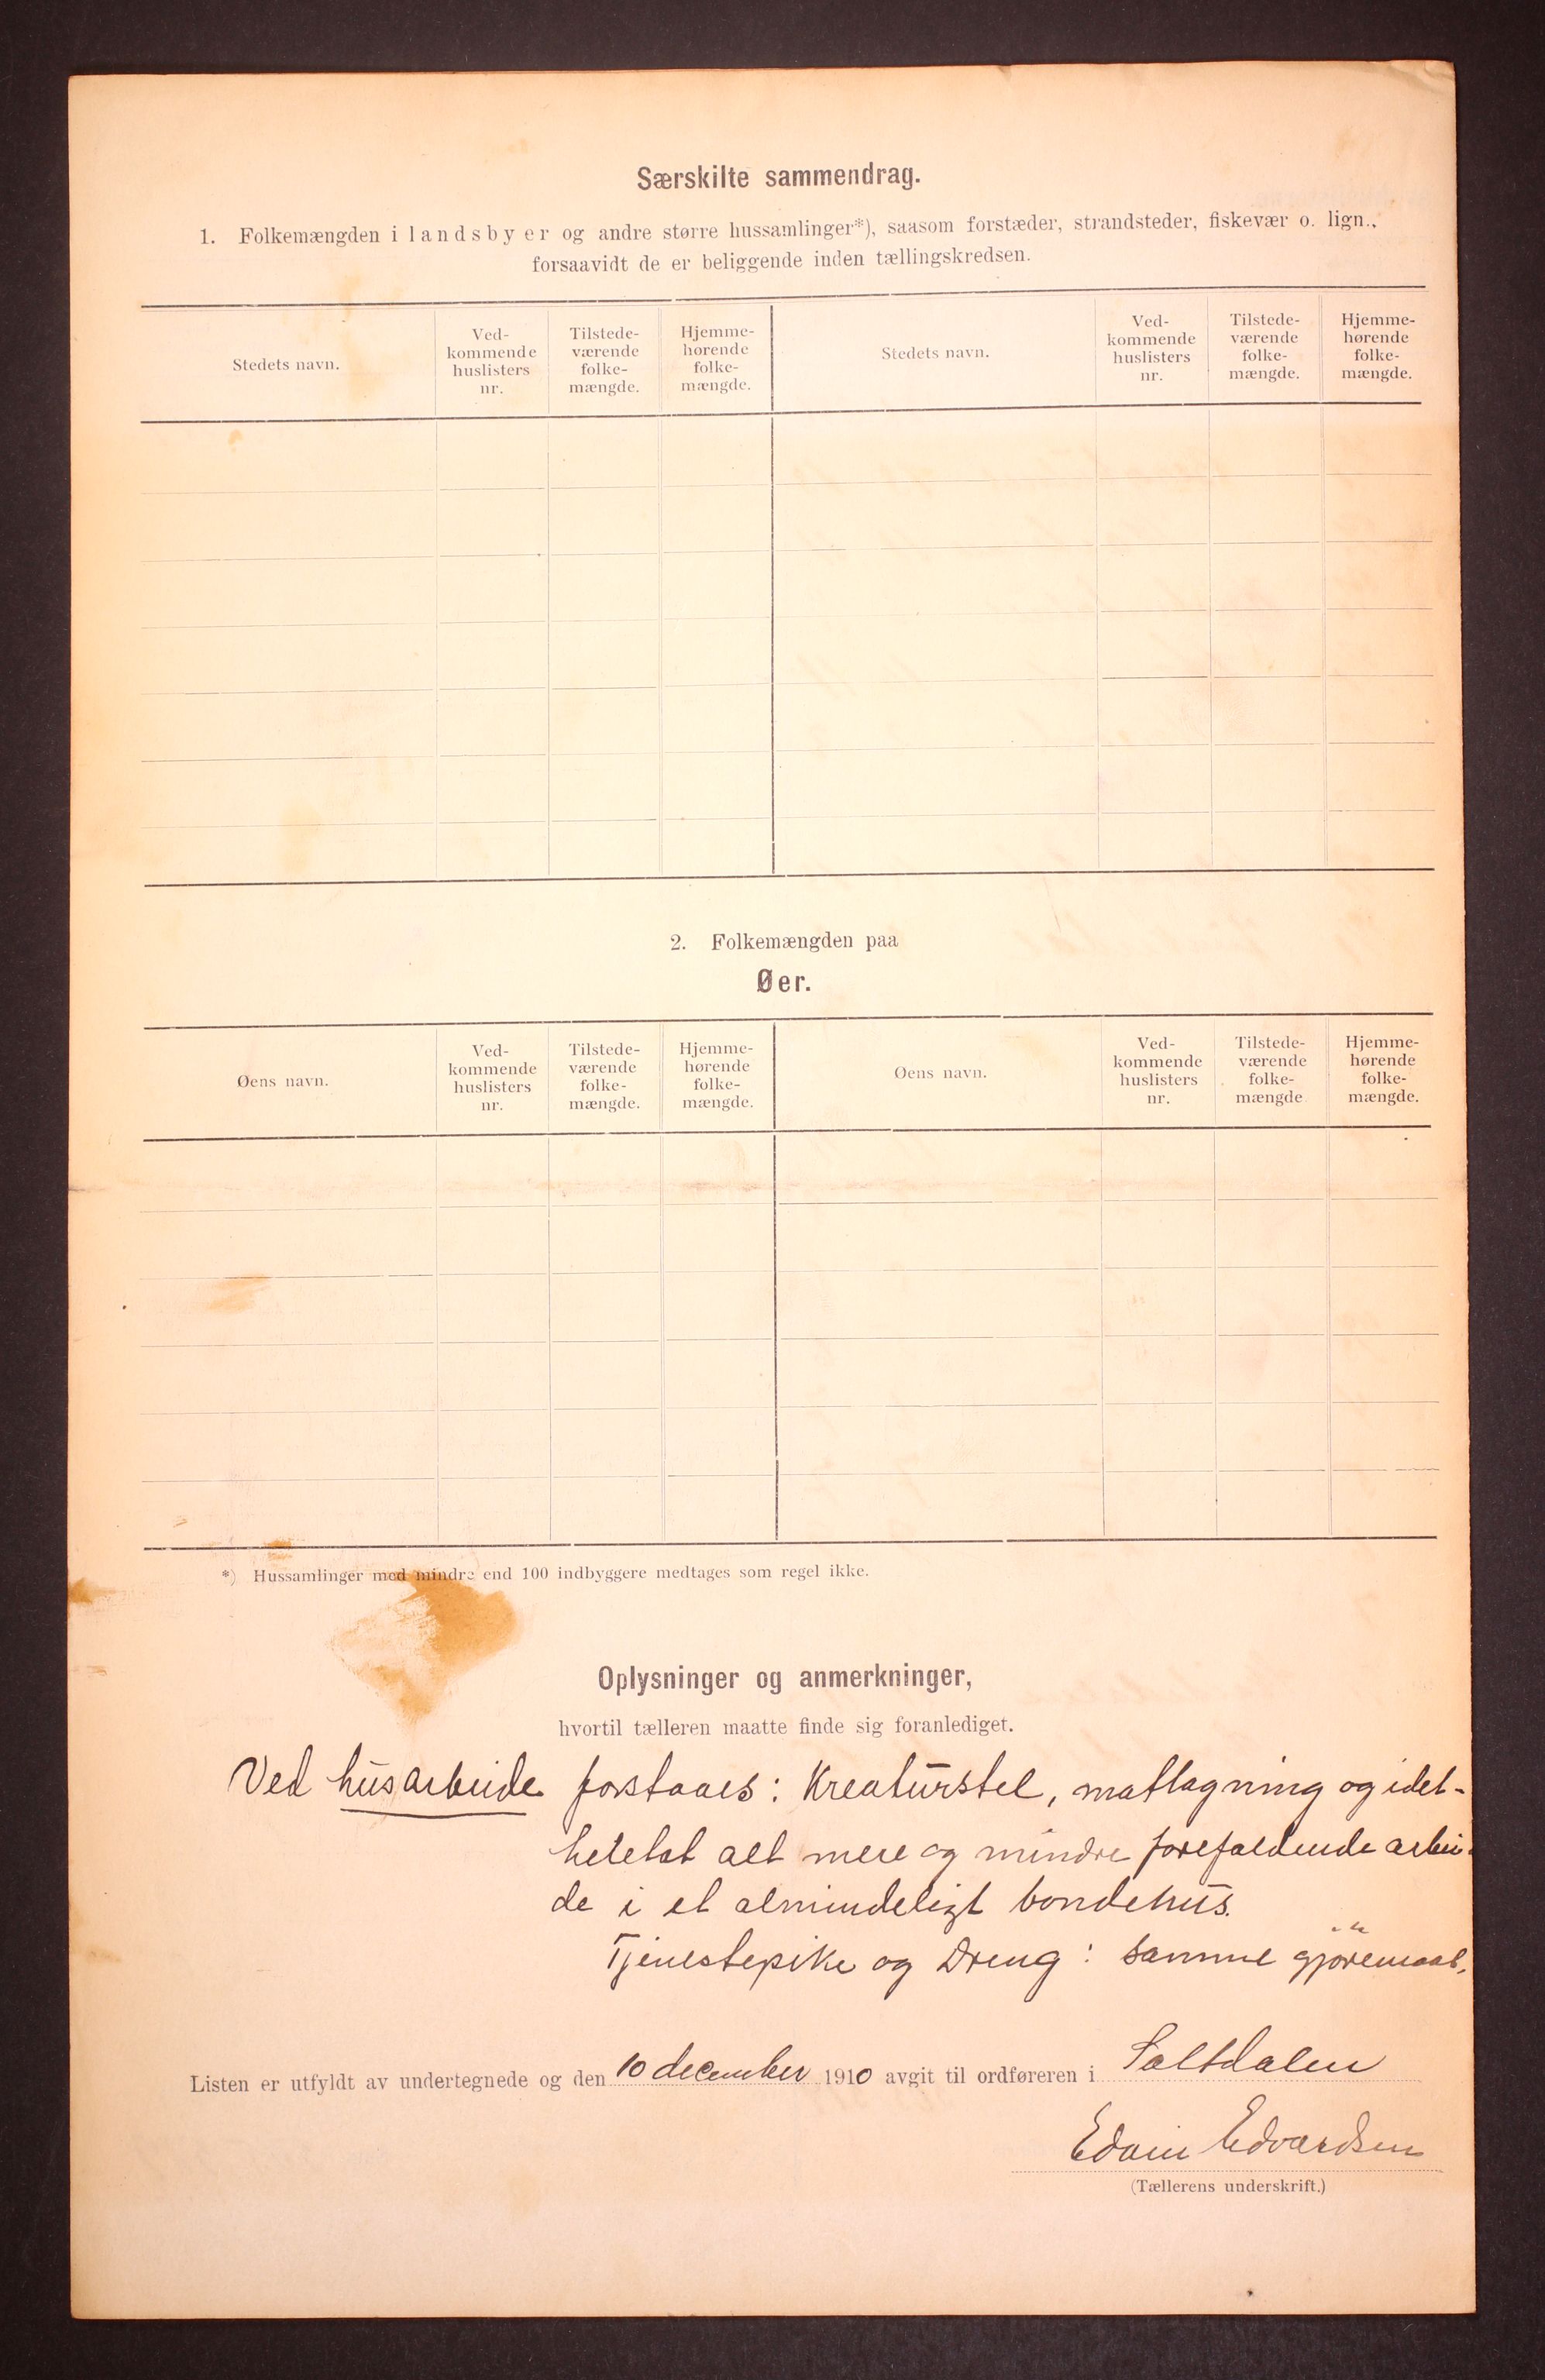 Særskilte sammendrag.
1. Folkemængden i landsbyer og andre større hussamlinger*), saasom forstæder, strandsteder, fiskevær o. lign.,
forsaavidt de er beliggende inden tællingskredsen.
Stedets navn.
Ved-
kommende
huslisters
nr.
Tilstede-
værende
folke-
mængde.
Hjemme-
hørende
folke-
mængde.
Stedets navn.
Ved-
kommende
huslisters
nr.
Tilstede-
værende
folke-
mængde.
Hjemme-
hørende
folke-
mængde.
2. Folkemængden paa
Øer.
Øens navn.
Ved-
kommende
huslisters
nr.
Tilstede-
værende
folke-
mængde.
Hjemme-
hørende
folke-
mængde.
Øens navn.
Ved-
kommende
huslisters
nr.
Tilstede-
værende
folke-
mængde
Hjemme-
hørende
folke-
mængde.
*) Hussamlinger med mindre end 100 indbyggere medtages som regel ikke.
Oplysninger og anmerkninger,
hvortil tælleren maatte finde sig foranlediget.
Ved husarbeide forstaaes: Kreaturstel, matlagning og idet-
heletat alt mere og mindre forefaldende arbei-
de i et almindeligt bondehus.
Tjenestepike og Dreng: samme gjøremaal.
Listen er utfyldt av undertegnede og den 10 december 1910 avgit til ordføreren i Saltdalen
Edvin Edvardsen
(Tællerens underskrift.)